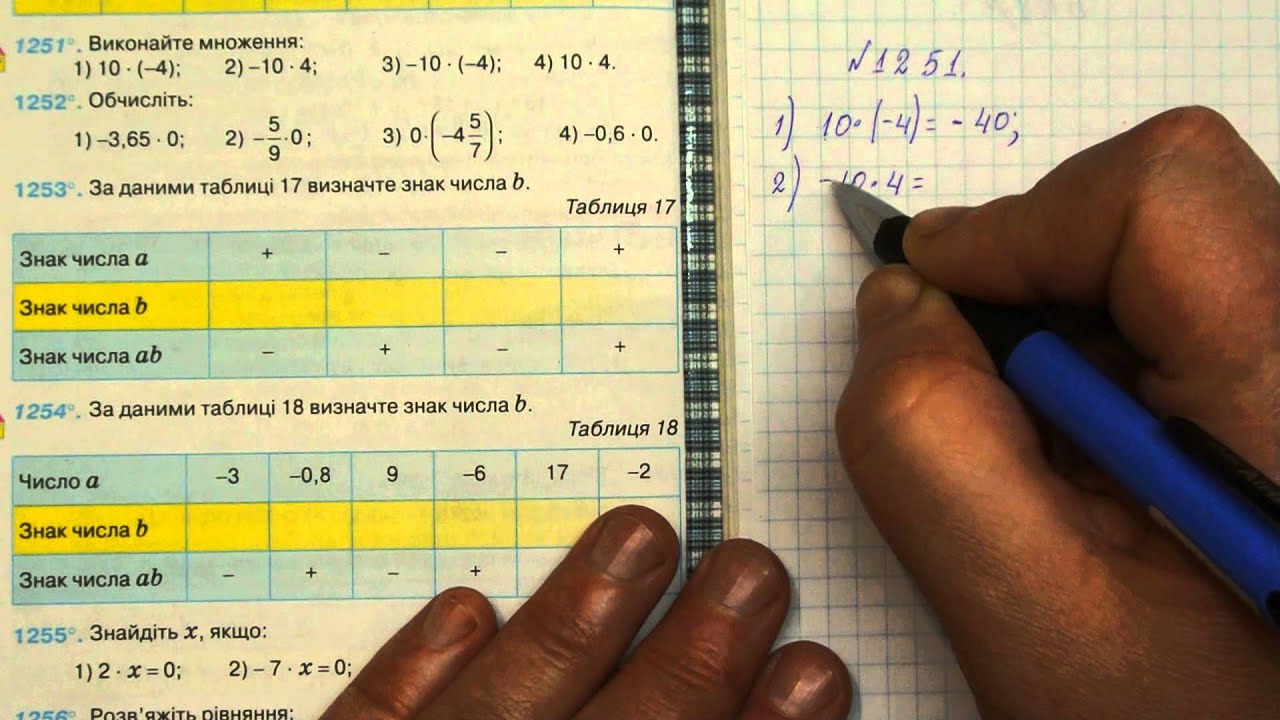 1251°. Виконайте множення:
1) 10 · (–4); 2) –10 · 4; 3) –10 · (–4); 4) 10 · 4.
1252°. Обчисліть:
1) –3,65 · 0; 2) –5/9 · 0; 3) 0 · (–4 5/7); 4) –0,6 · 0.
1253°. За даними таблиці 17 визначте знак числа b.
Таблиця 17
Знак числа a + – – +
Знак числа b
Знак числа ab – + – +
1254°. За даними таблиці 18 визначте знак числа b.
Таблиця 18
Число a –3 –0,8 9 –6 17 –2
Знак числа b
Знак числа ab – + – +
1255°. Знайдіть x, якщо:
1) 2 · x = 0; 2) – 7 · x = 0;
1256°. Розв'яжіть рівняння:
№1251.
1) 10·(-4) = -40;
2) -10·4 =